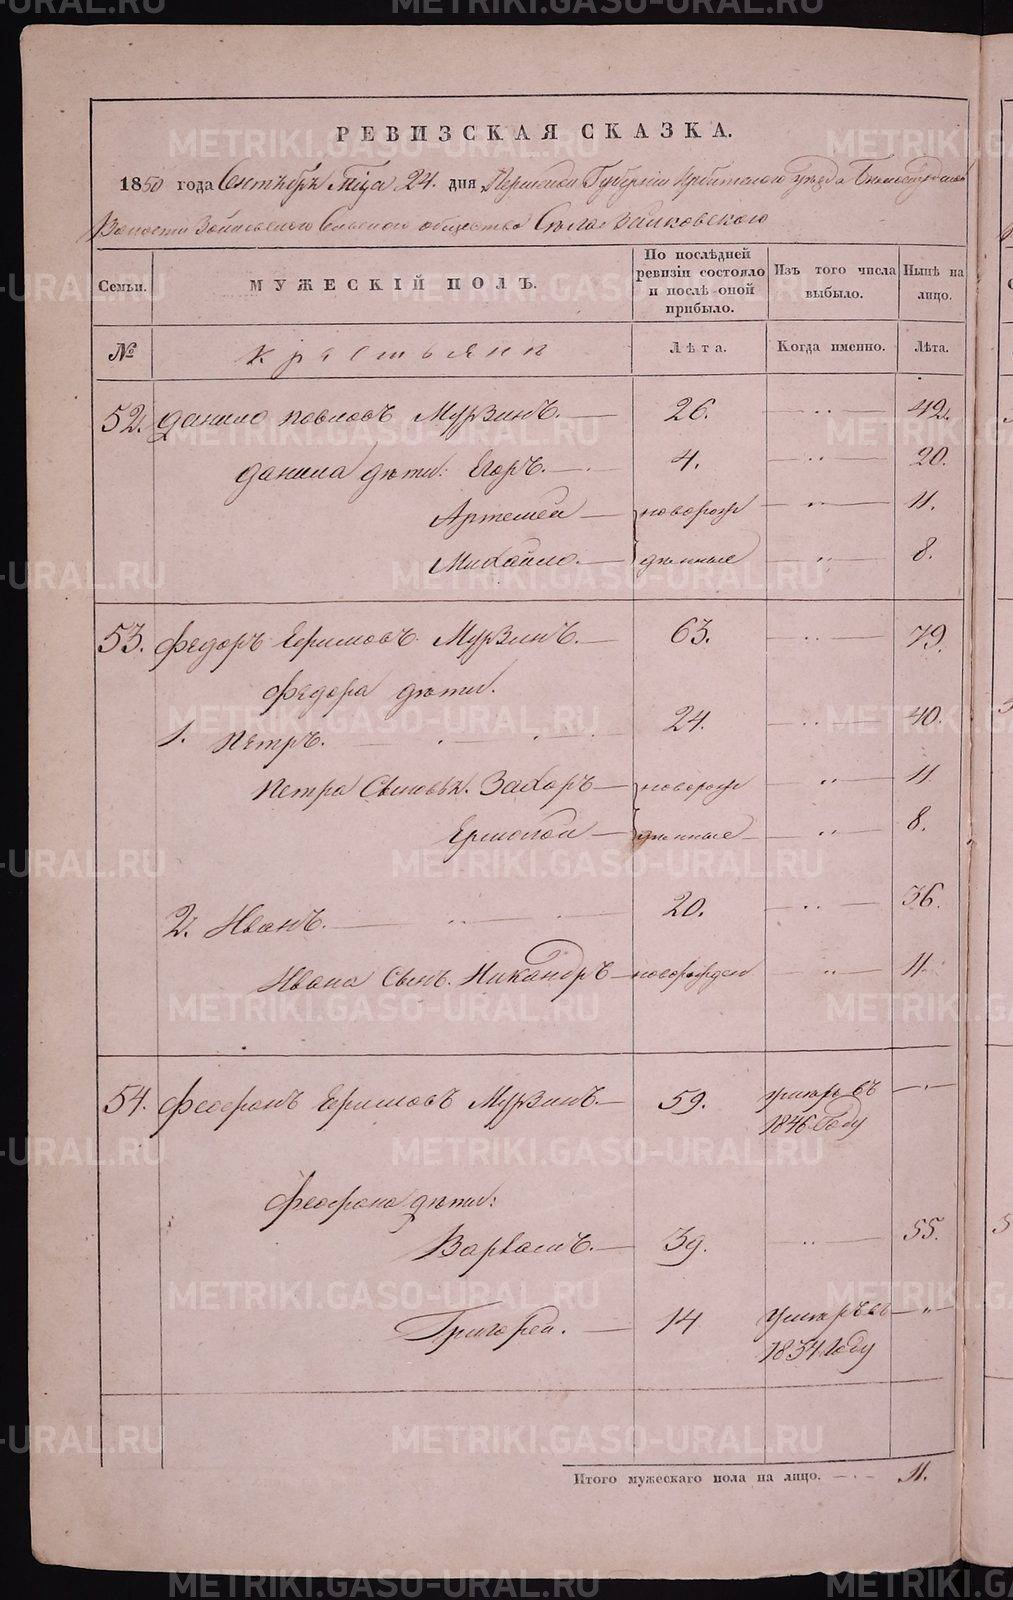 РЕВИЗСКАЯ СКАЗКА.
1850 года Сентября м҃ца 24. дня, Пермской Губернiи Ирбитского уѣзда Белослудской
Волости Зайковского Сельского общества Села Зайковского
Семьи. МУЖЕСКIЙ ПОЛЪ. По послѣдней ревизiи состояло и послѣ оной прибыло. Изъ того числа выбыло. Нынѣ на лицо.
№ Крестьяни Лѣта. Когда именно. Лѣта.
52. Данило Павловъ Мурзинъ. 26. 42.
Данила дѣти: Егоръ. 4. 20.
Артемей новорож 11.
Михайло. дѣнные 8.
53. Федоръ Ефимовъ Мурзинъ. 63. 79.
Федора дѣти.
1. Петръ. 24. 40.
Петра Сыновья. Захоръ новорож 11
Ермолай дѣнные 8.
2. Иванъ. 20. 36.
Ивана Сынъ. Никандръ новорожден 11.
54. Феофонъ Ефимовъ Мурзинъ. 59. умеръ въ
1846 Году
Феофона дѣти:
Варламъ. 39. 55.
Григорей. 14 Умеръ въ
1834 Году
Итого мужескаго пола на лицо. 11.